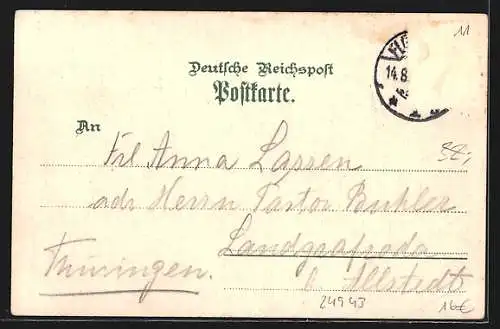 11
14.8.
Deutsche Reichspost
Postkarte.
An
Frl Anna Lassen
adr Herrn Pastor Buhler
Landgrafroda
b Allstedt
Thüringen.
24943
16€